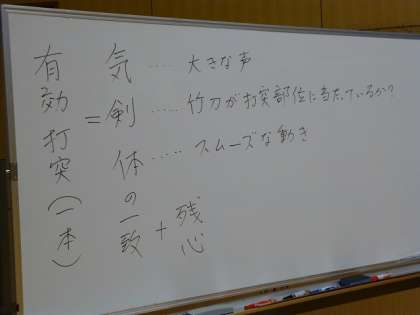 有効打突（一本）
＝
気剣体の一致
＋
残心
‥‥ 大きな声
‥‥ 竹刀が打突部位に当たっているか？
‥‥ スムーズな動き